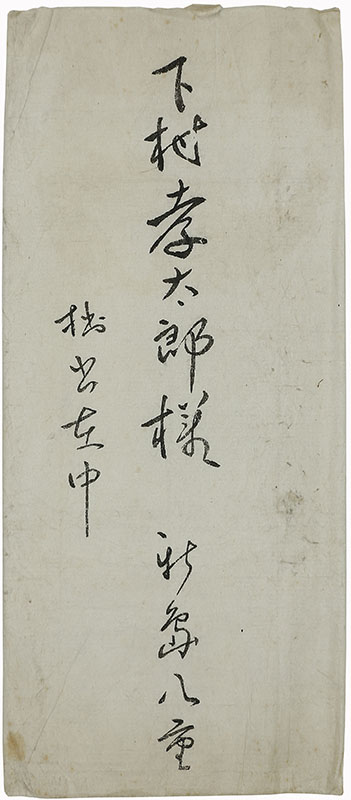 下村孝太郎様 新島八重
書在中